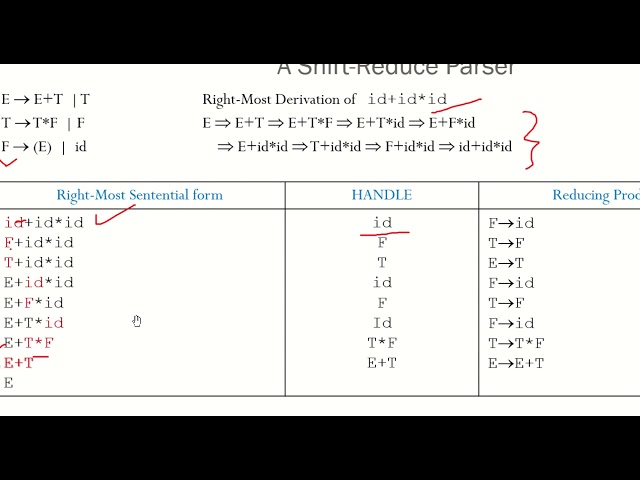 A Shift-Reduce Parser
E → E+T | T
Right-Most Derivation of id+id*id
T → T*F | F
E ⇒ E+T ⇒ E+T*F ⇒ E+T*id ⇒ E+F*id
F → (E) | id
⇒ E+id*id ⇒ T+id*id ⇒ F+id*id ⇒ id+id*id
Right-Most Sentential form HANDLE Reducing Prod
id+id*id id F→id
F+id*id F T→F
T+id*id T E→T
E+id*id id F→id
E+F*id F T→F
E+T*id Id F→id
E+T*F T*F T→T*F
E+T E+T E→E+T
E